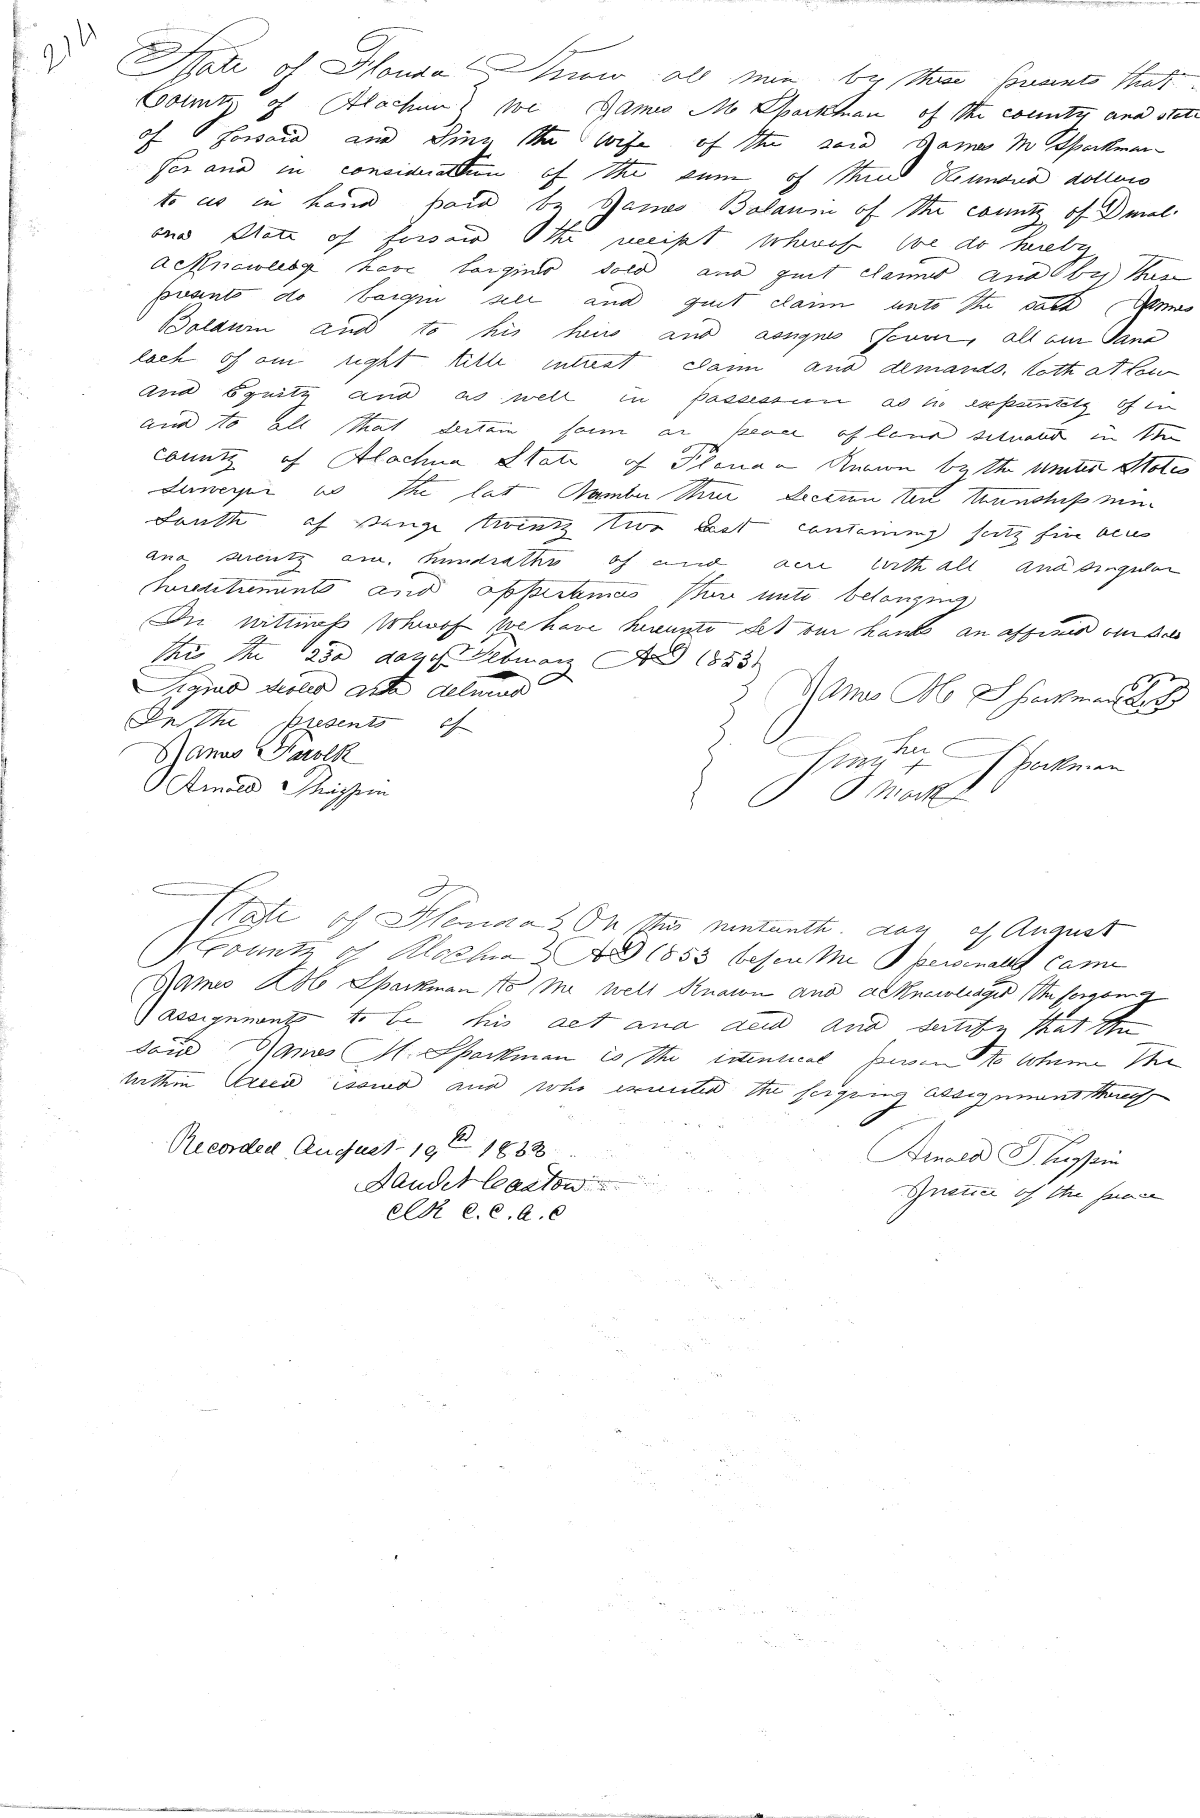 214
State of Florida } Know all men by these presents that
County of Alachua } we James M Sparkman of the county and state
of forsaid and Sing the wife of the said James M Sparkman
for and in consideration of the sum of three Hundred dollars
to us in hand paid by James Baldwin of the county of Duval
and State of forsaid the receipt whereof we do hereby
acknowledge have bargined sold and quit claimed and by these
presents do bargin sell and quit claim unto the said James
Baldwin and to his heirs and assignes forever, all our and
each of our right title intrest claim and demands, both at law
and Equity and as well in possession as in expectantcy of in
and to all that sertain farm or peace of land situated in the
county of Alachua State of Florida Known by the united States
Surveyor as the lot Number three Section ten township nine
South of range twenty two East containing forty five acres
and seventy one hundraths of and acre with all and singular
hereditements and appertances there unto belonging
In wittness whereof we have hereunto set our hands an affixed our Seals
this the 23d day of February AD 1853
Signed sealed and delivered
In the presents of
James M Sparkman L.S.
James
Arnold Thigpin
Sing her x mark Sparkman
State of Florida } On this nintenth day of August
County of Alachua } AD 1853 before me personally came
James M Sparkman to me well Known and acknowledged the forgoing
assignments to be his act and deed and sertify that the
said James M. Sparkman is the identical person to whome the
within deed issued and who executed the forgoing assignment thereof
Recorded August 19th 1853
Arnold Thigpin
Justice of the peace
Clk C.C.A.C